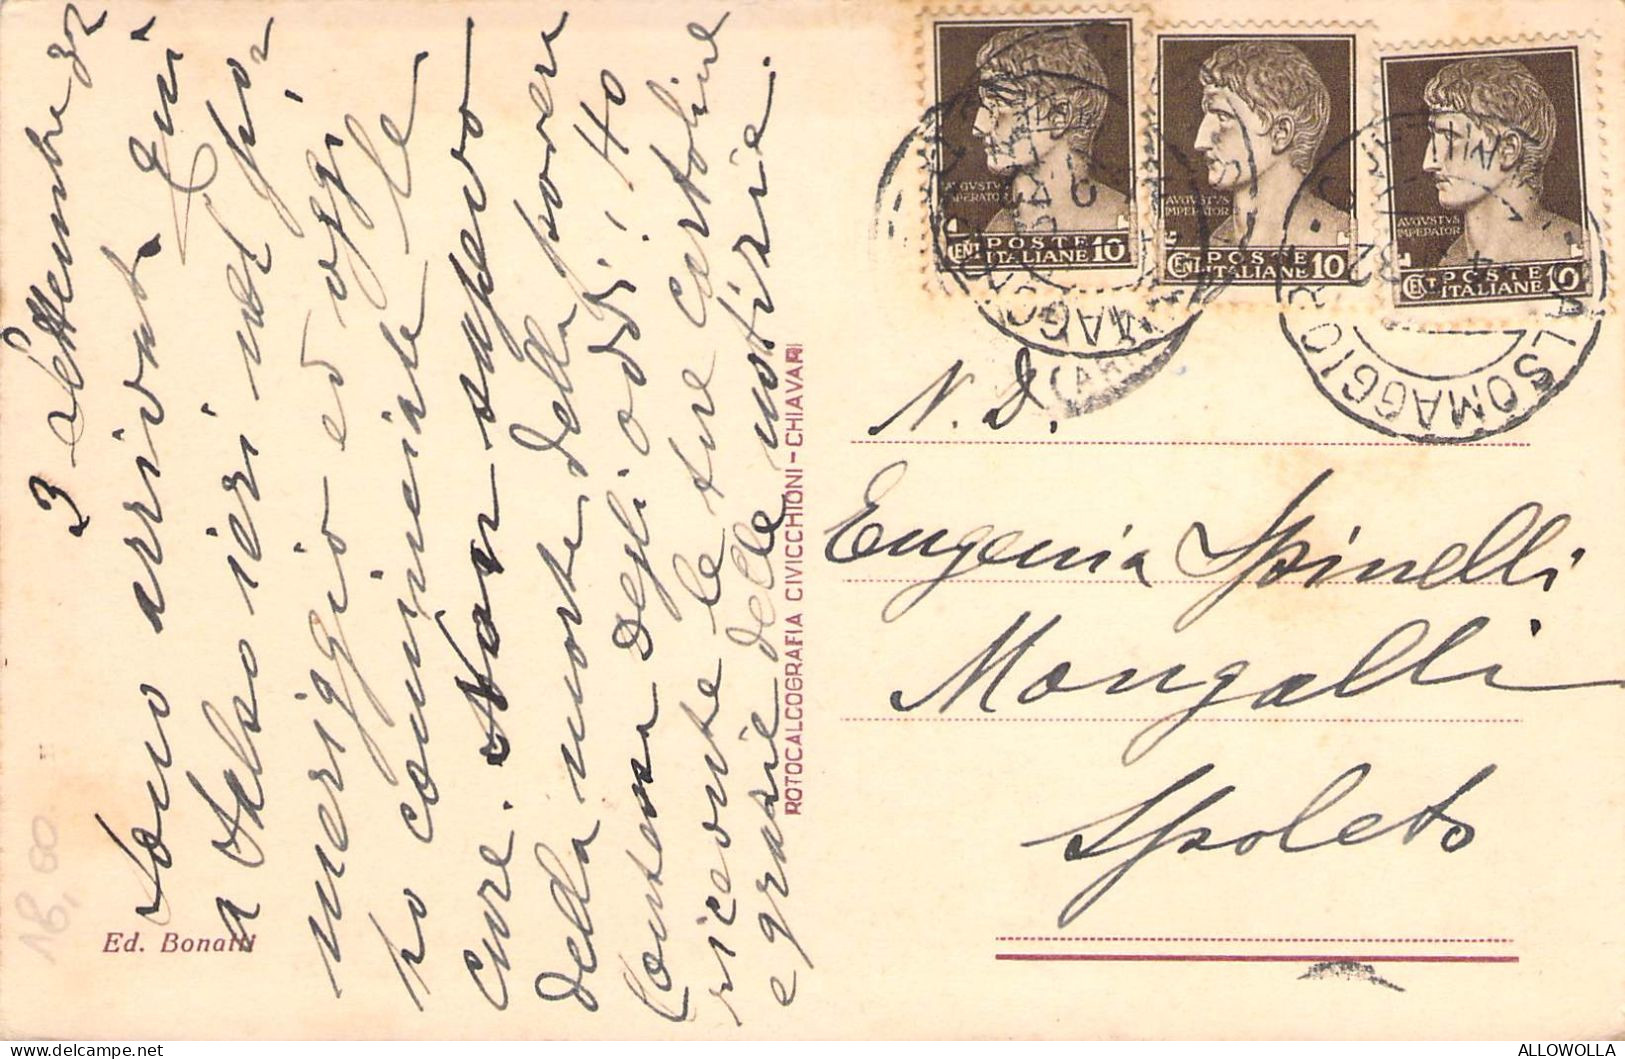 3 Settembre 32
Sono arrivont Qui
a Salso ieri nel po-
meriggio ed oggi
ho cominciato le
cure. Non sapevo
della morte della povera
Contessa degli oddi! Ho
ricevute le tue cartoline
e grazie delle notizie.
Ed. Bonatti
ROTOCALCOGRAFIA CIVICCHIONI - CHIAVARI
AVGVSTVS
IMPERATOR
CENT POSTE
ITALIANE 10
AVGVSTVS
IMPERATOR
CENT POSTE
ITALIANE 10
AVGVSTVS
IMPERATOR
CENT POSTE
ITALIANE 10
SALSOMAGGIORE
32
N. D.
Eugenia Spinelli
Mongalli
Spoleto
ALLOWOLLA